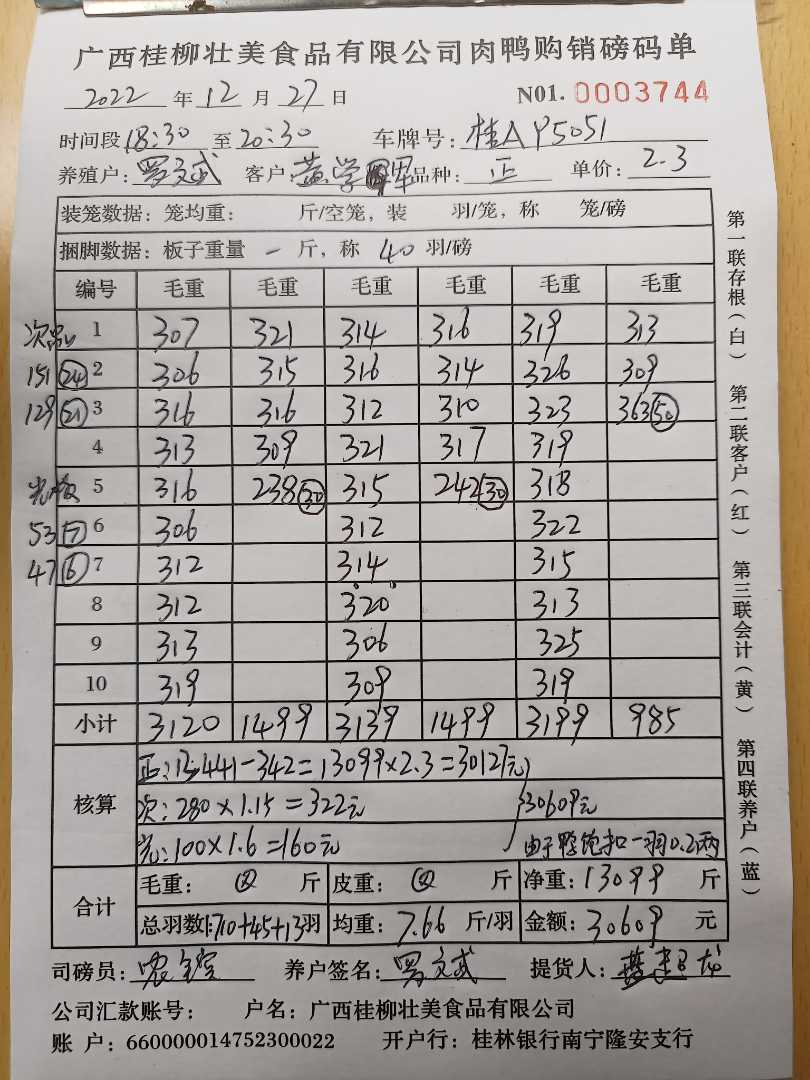 广西桂柳壮美食品有限公司肉鸭购销磅码单
2022 年 12 月 27 日 N01. 0003744
时间段 18:30 至 20:30 车牌号: 桂A Y5051
养殖户: 罗文武 客户: 黄学 品种: 正 单价: 2.3
装笼数据: 笼均重: 斤/空笼, 装 羽/笼, 称 笼/磅
捆脚数据: 板子重量 一 斤, 称 40 羽/磅
编号 毛重 毛重 毛重 毛重 毛重 毛重
次品 1 307 321 314 316 319 313
151 24 2 306 315 316 314 326 309
129 21 3 316 316 312 310 323 363 50
4 313 309 321 317 319
光板 5 316 238 30 315 242 30 318
53 7 6 306 312 322
47 6 7 312 314 315
8 312 320 313
9 313 306 325
10 319 309 319
小计 3120 1499 3139 1499 3199 985
核算 正: 13441-342=13099×2.3=30127元
次: 280×1.15=322元 30609元
光: 100×1.6=160元 由于鸭饱扣一羽0.2两
合计 毛重: 斤 皮重: 斤 净重: 13099 斤
总羽数: 1710+45+13羽 均重: 7.66 斤/羽 金额: 30609 元
司磅员: 养户签名: 罗文武 提货人:
公司汇款账号: 户名: 广西桂柳壮美食品有限公司
账 户: 660000014752300022 开户行: 桂林银行南宁隆安支行
第一联存根(白) 第二联客户(红) 第三联会计(黄) 第四联养户(蓝)